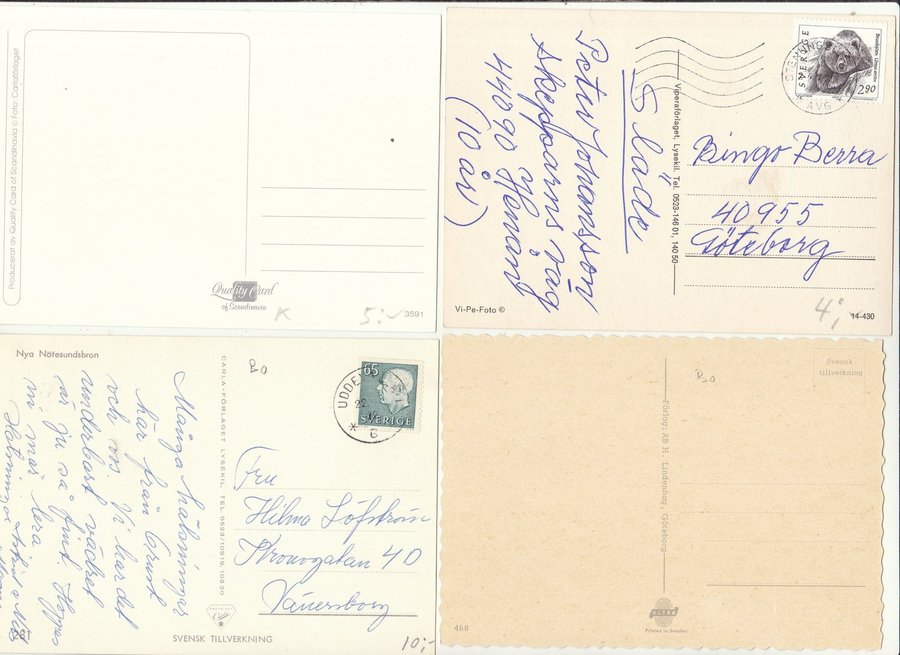 Producerat av Quality Card of Scandinavia © Foto: Carlaförlaget
Quality Card
of Scandinavia
K
5:-
3591
Petter Johansson
Skepparns väg
44090 Henån
(10 år)
Släde
Viperaförlaget, Lysekil. Tel. 0523-146 01, 140 50
SVERIGE
Brunbjörn
2,90
AVG
Bingo Berra
40955
Göteborg
Vi-Pe-Foto ©
4:-
14-430
Nya Nötesundsbron
Många hälsningar
här från Orust
och oss. Vi har det
underbart vädret
är ju så fint. Hoppas
ni mår bra
Hälsningar
281
CARLA-FÖRLAGET LYSEKIL TEL 0523/10919, 10320
65
SVERIGE
22
Fru
Hilma Löfström
Kronogatan 4D
Vänersborg
SVENSK TILLVERKNING
10:-
Svensk
tillverkning
Förlag: AB H. Lindenhag, Göteborg
ULTRA
Printed in Sweden
468